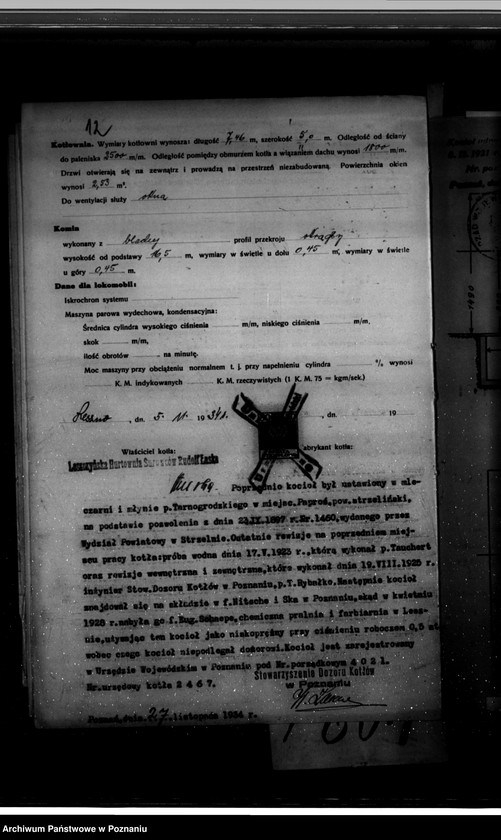 12
Kotłownia. Wymiary kotłowni wynoszą: długość 7,46 m, szerokość 5,0 m. Odległość od ściany
do paleniska 2500 m/m. Odległość pomiędzy obmurzem kotła a wiązaniem dachu wynosi 1800 m/m.
Drzwi otwierają się na zewnątrz i prowadzą na przestrzeń niezabudowaną. Powierzchnia okien
wynosi 2,53 m².
Do wentylacji służy okna
Komin
wykonany z blachy profil przekroju okrągły
wysokość od podstawy 16,5 m, wymiary w świetle u dołu 0,45 m, wymiary w świetle
u góry 0,45 m.
Dane dla lokomobili:
Iskrochron systemu
Maszyna parowa wydechowa, kondensacyjna:
Średnica cylindra wysokiego ciśnienia m/m, niskiego ciśnienia m/m,
skok m/m,
ilość obrotów na minutę.
Moc maszyny przy obciążeniu normalnem t. j. przy napełnieniu cylindra % wynosi
K. M. indykowanych K. M. rzeczywistych (1 K. M. 75 = kgm/sek.)
Leszno, dn. 5. 11. 1934 r. , dn. 19
Właściciel kotła: abrykant kotła:
Leszczyńska Hurtownia Rudolf Łaska
Poprzednio kocioł był ustawiony w mle-
czarni i młynie p. Tarnogrodzkiego w miejsc. Paproś, pow. strzeliński,
na podstawie pozwolenia z dnia IX. 1897 r. Nr. 1460, wydanego przez
Wydział Powiatowy w Strzelnie. Ostatnie rewizje na poprzedniem miej-
scu pracy kotła: próba wodna dnia 17.V.1923 r., którą wykonał p. Tanchert
oraz rewizję wewnętrzną i zewnętrzną, którą wykonał dnia 19.VIII.1925 r.
inżynier Stow. Dozoru Kotłów w Poznaniu, p. T. Rybałko. Następnie kocioł
znajdował się na składzie w f. Nitsche i Ska w Poznaniu, skąd w kwietniu
1928 r. nabyła go f. Eug. Schnepe, chemiczna pralnia i farbiarnia w Lesz-
nie, używając ten kocioł jako niskoprężny przy ciśnieniu roboczem 0,5 at
wobec czego kocioł niepodlegał dozorowi. Kocioł jest zarejestrowany
w Urzędzie Wojewódzkim w Poznaniu pod Nr. porządkowym 4021.
Nr. urzędowy kotła 2467.
Stowarzyszenie Dozoru Kotłów
w Poznaniu
Poznań, dnia 27 listopada 1934 r.
1490
Archiwum Państwowe w Poznaniu